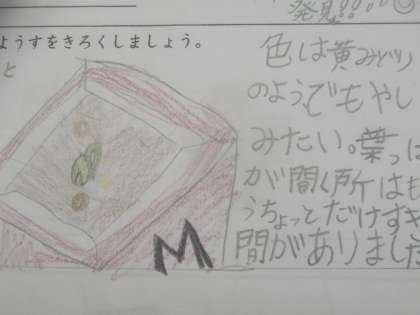 発見!!
ようすをきろくしましょう。
と
色は黄みどり
のよう、でもやし
みたい。葉っぱ
が間く所はも
うちょっとだけすき
間がありました
M